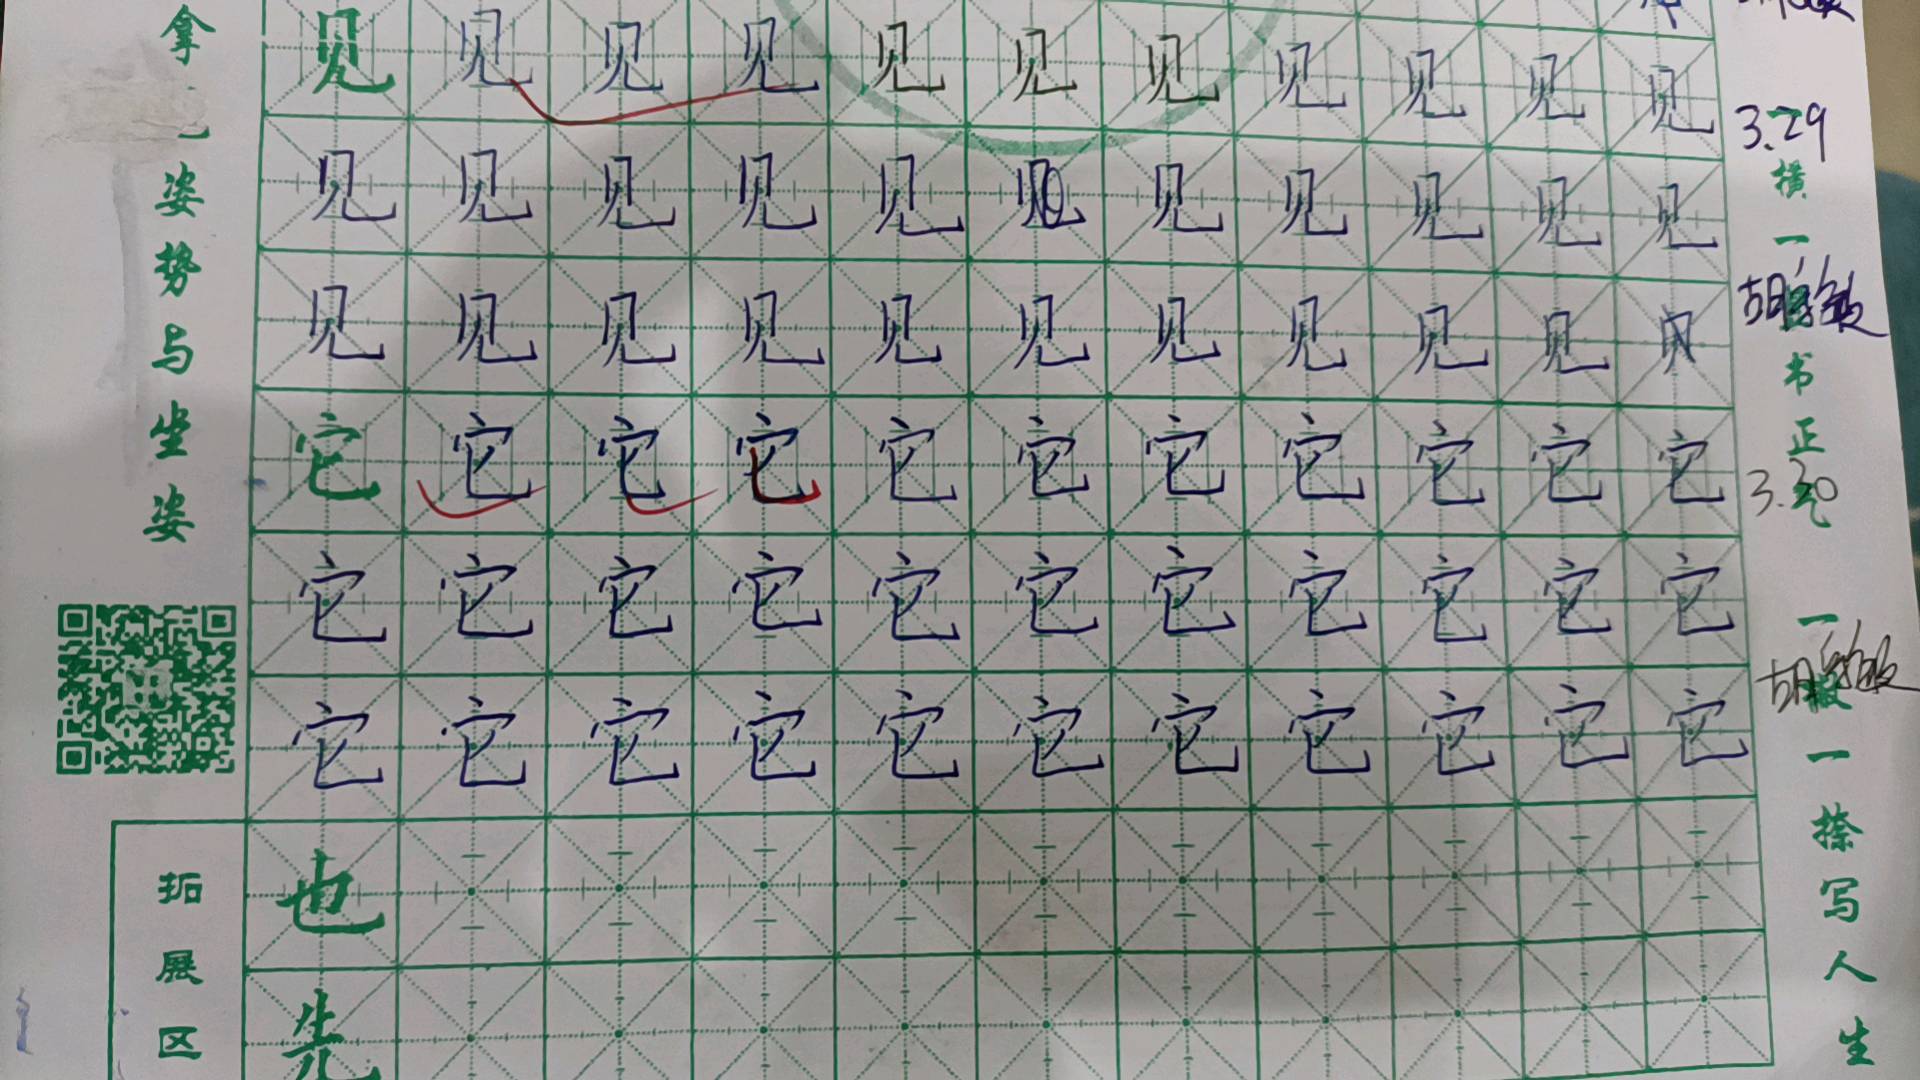 拿
姿
势
与
坐
姿
见 见 见 见 见 见 见 见 见 见 见
见 见 见 见 见 见 见 见 见 见
见 见 见 见 见 见 见 见 见 见
它 它 它 它 它 它 它 它 它 它 它
它 它 它 它 它 它 它 它 它 它 它
它 它 它 它 它 它 它 它 它 它 它
也
先
拓
展
区
3.29
横
一
书
正
3.30
一
一
捺
写
人
生